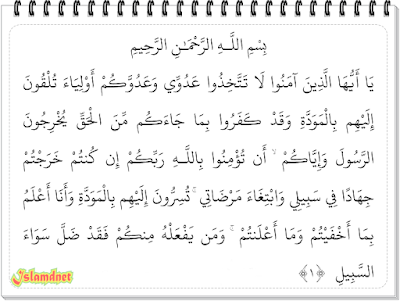 بِسْمِ اللَّـهِ الرَّحْمَـٰنِ الرَّحِيمِ
يَا أَيُّهَا الَّذِينَ آمَنُوا لَا تَتَّخِذُوا عَدُوِّي وَعَدُوَّكُمْ أَوْلِيَاءَ تُلْقُونَ
إِلَيْهِم بِالْمَوَدَّةِ وَقَدْ كَفَرُوا بِمَا جَاءَكُم مِّنَ الْحَقِّ يُخْرِجُونَ
الرَّسُولَ وَإِيَّاكُمْ ۙ أَن تُؤْمِنُوا بِاللَّـهِ رَبِّكُمْ إِن كُنتُمْ خَرَجْتُمْ
جِهَادًا فِي سَبِيلِي وَابْتِغَاءَ مَرْضَاتِي ۚ تُسِرُّونَ إِلَيْهِم بِالْمَوَدَّةِ وَأَنَا أَعْلَمُ
بِمَا أَخْفَيْتُمْ وَمَا أَعْلَنتُمْ ۚ وَمَن يَفْعَلْهُ مِنكُمْ فَقَدْ ضَلَّ سَوَاءَ
السَّبِيلِ ﴿١﴾
Islamdnet